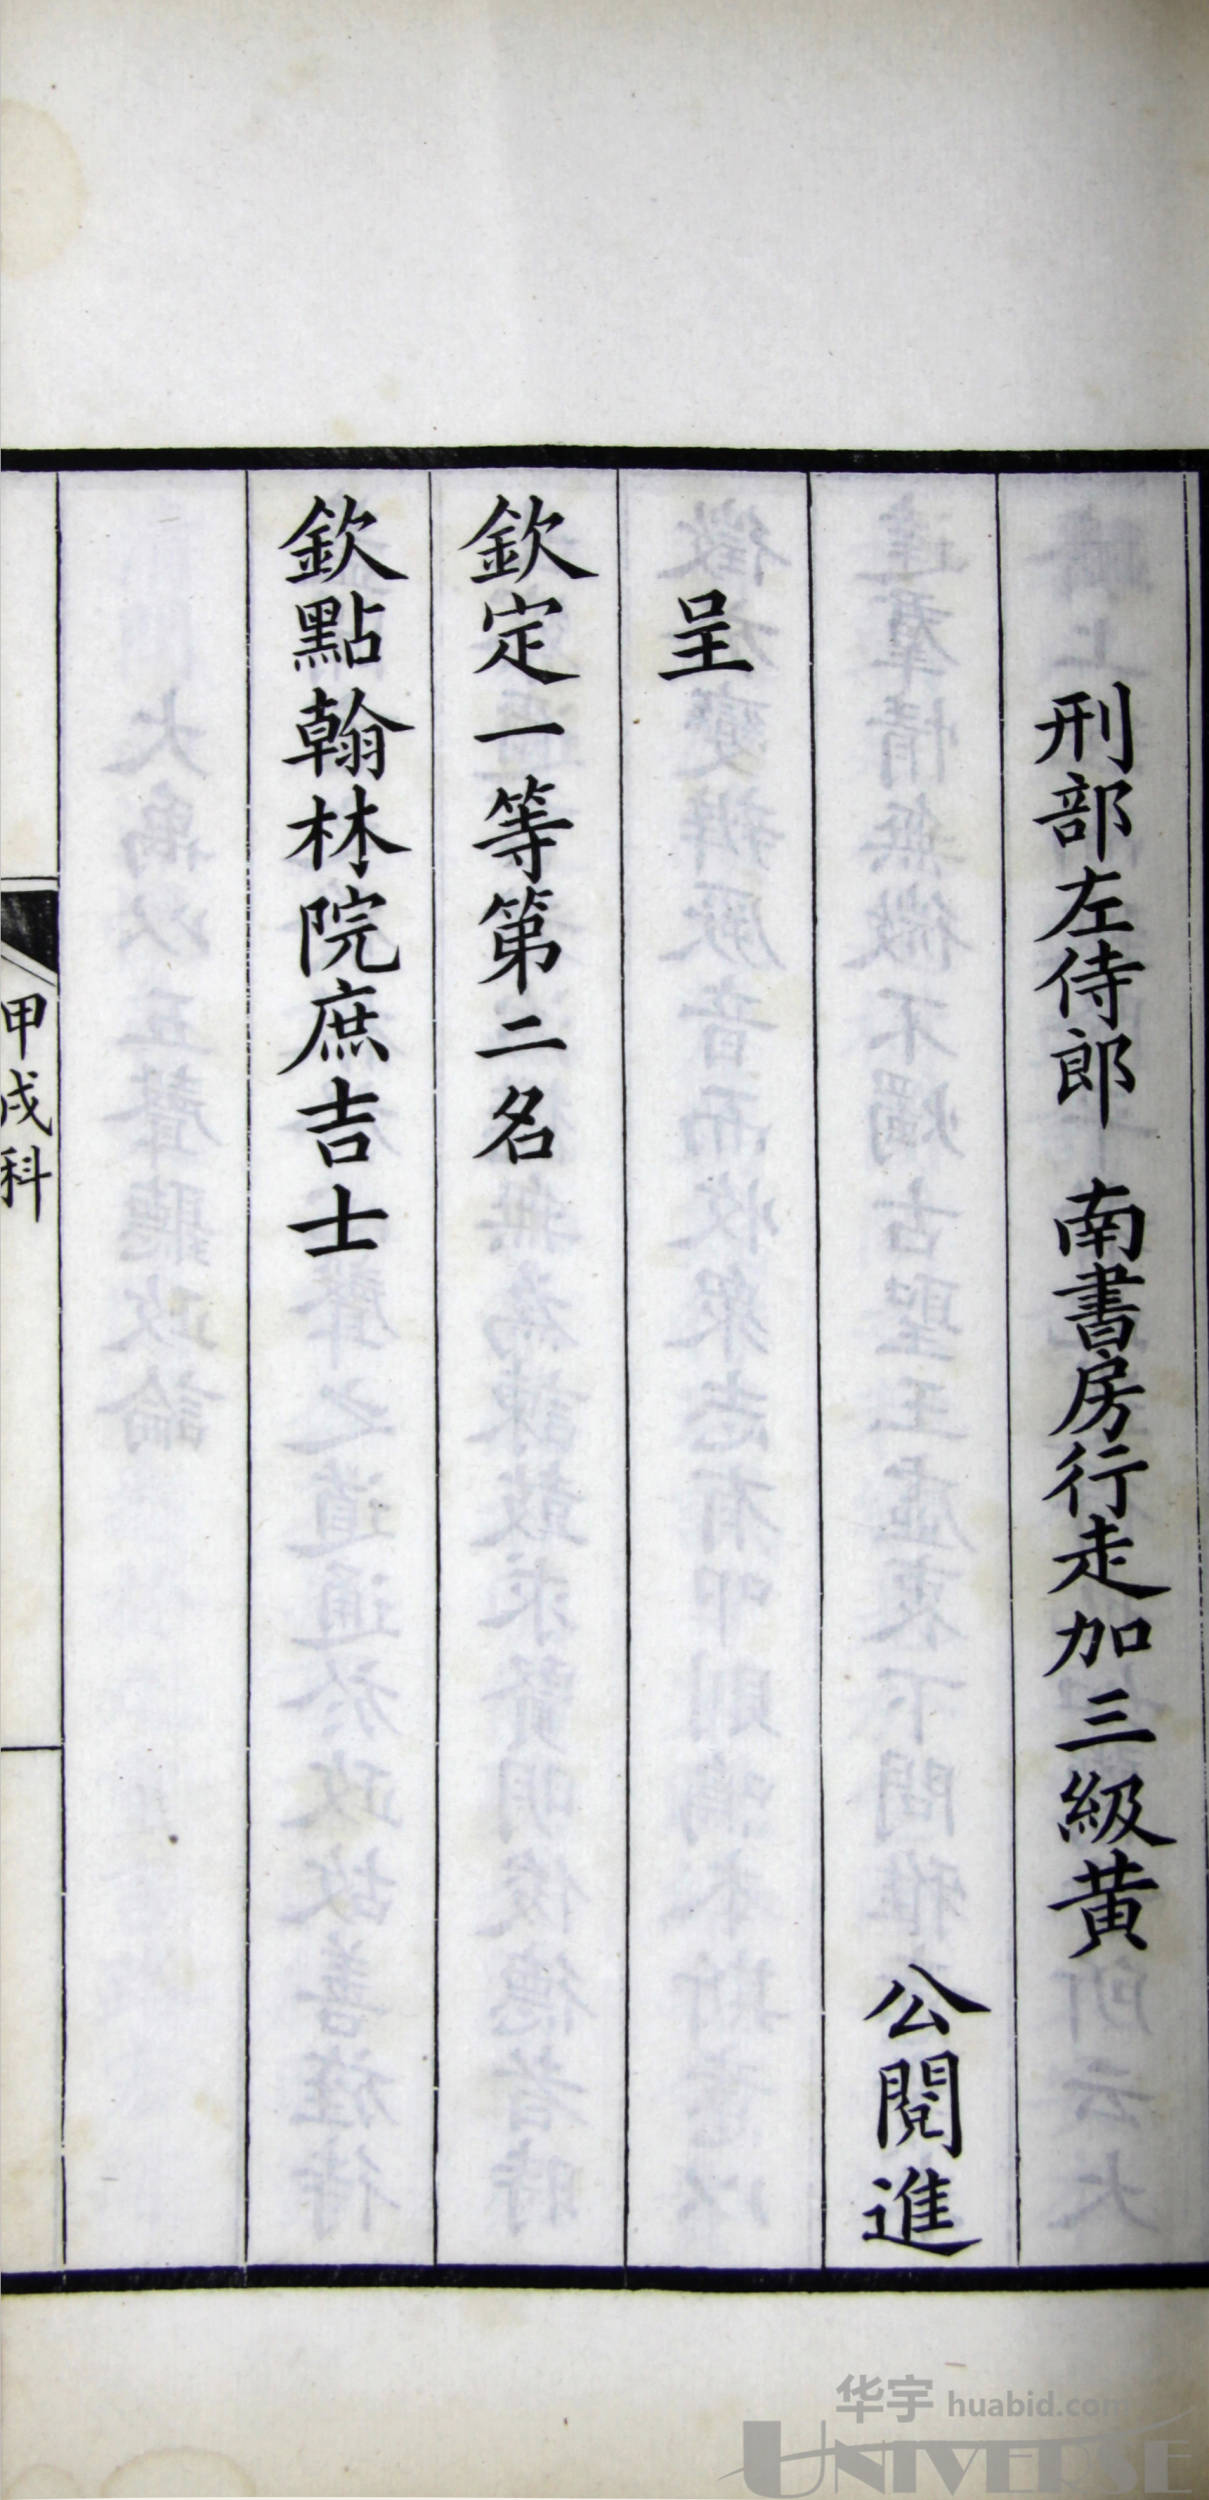 刑部左侍郎 南書房行走加三級黄
公閱進
呈
欽定一等第二名
欽點翰林院庶吉士
甲戌科
华宇 huabid.com
UNIVERSE